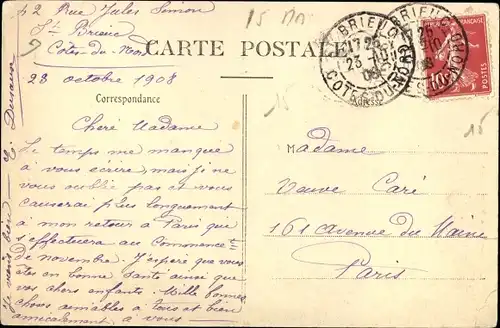 42 Rue Jules Simon
St Brieuc
Cotes du Nord
23 octobre 1908
15
CARTE POSTALE
BRIEUC
23
08
COTES-DU-
10c
Correspondance
Adresse
Chere Madame
Le temps me manque
à vous écrire mais je ne
vous oublie pas et vous
causerai plus longuement
à mon retour à Paris que
s'effectuera au commence
de novembre. J'espère que vous
êtes en bonne santé ainsi que
vos chers enfants. Mille bonnes
choses aimables à tous et bien
amicalement à vous
15
15
MADAME
Veuve Caré
161 avenue du Maine
Paris